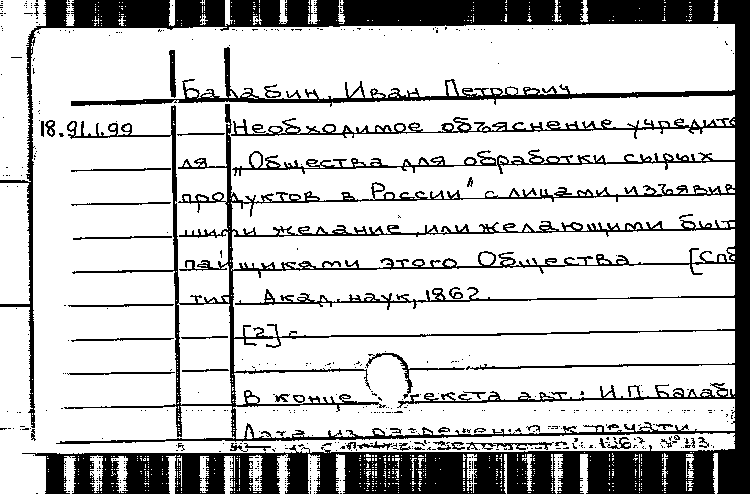 Балабин, Иван Петрович
18.91.1.99 Необходимое объяснение учредите
ля „Общества для обработки сырых
продуктов в России" с лицами, изъявив
шими желание или желающими быт
пайщиками этого Общества. [Спб
тип. Акад. наук, 1862.
[2] с
В конце текста авт.: И.П. Балаб
Дата из разрешения к печати
1862, № 113.